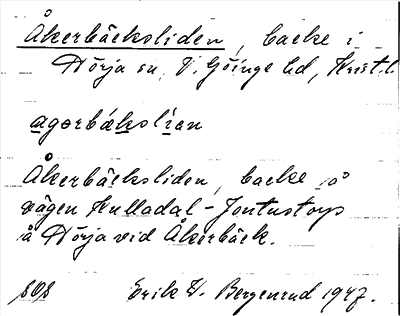 Åkerbäcksliden, backe i
Hörja sn, V. Göinge hd, Krist. l.
agərbákslían
Åkerbäcksliden, backe på
vägen Kulladal - Jontustorp
i Hörja vid Åkerbäck.
Erik W. Bergenrud 1947.